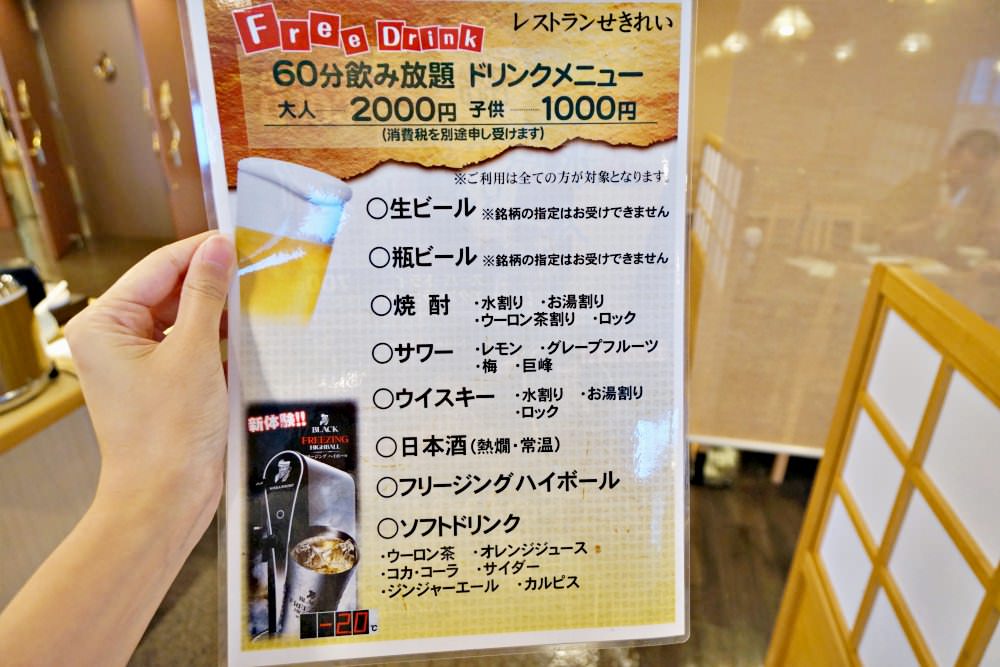 Free Drink
レストランせきれい
60分飲み放題 ドリンクメニュー
大人 2000円 子供 1000円
(消費税を別途申し受けます)
※ご利用は全ての方が対象となります。
○生ビール ※銘柄の指定はお受けできません
○瓶ビール ※銘柄の指定はお受けできません
○焼酎 ・水割り ・お湯割り
・ウーロン茶割り ・ロック
○サワー ・レモン ・グレープフルーツ
・梅 ・巨峰
○ウイスキー ・水割り ・お湯割り
・ロック
○日本酒(熱燗・常温)
○フリージングハイボール
○ソフトドリンク
・ウーロン茶 ・オレンジジュース
・コカ・コーラ ・サイダー
・ジンジャーエール ・カルピス
新体験!!
BLACK
FREEZING
HIGHBALL
-20℃